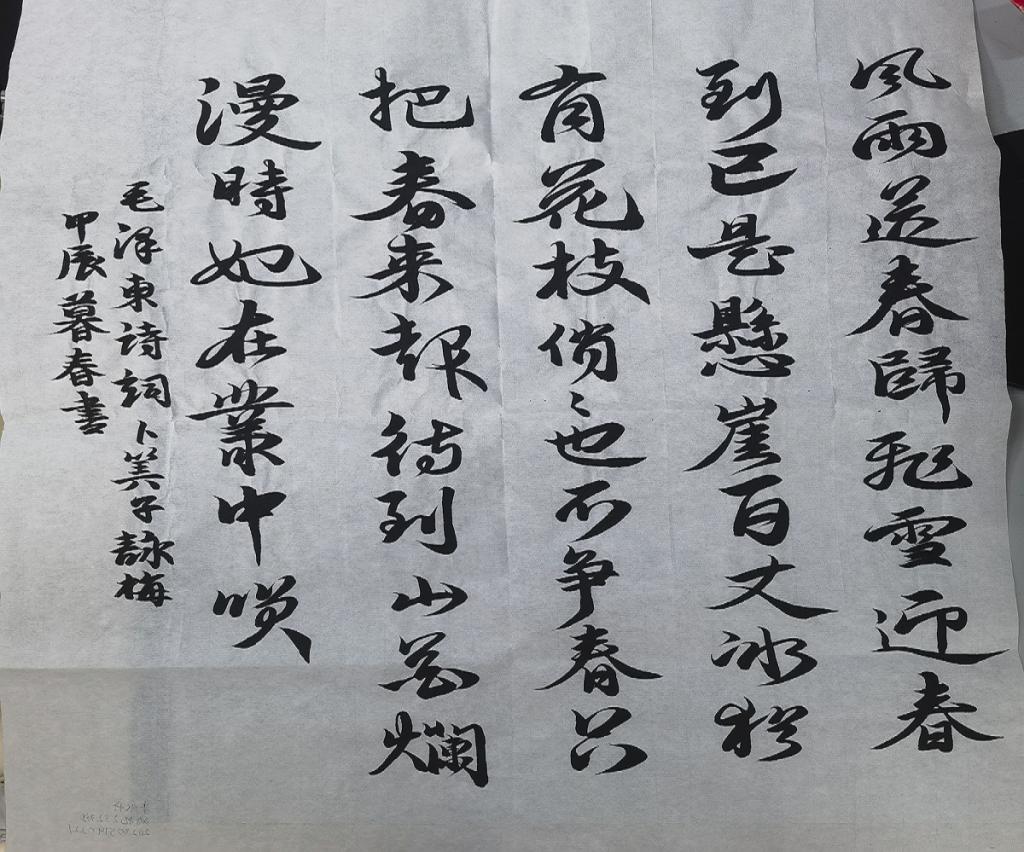 風雨送春歸飛雪迎春
到已是懸崖百丈冰猶
有花枝俏〻也不争春只
把春来報待到山花爛
漫時她在叢中咲
毛泽東詩詞卜算子詠梅
甲辰暮春書